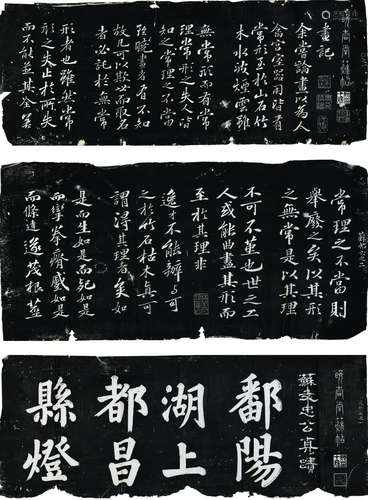 晚香堂蘇帖
畫記
余嘗論畫以為人
禽宮室器用皆有
常形至於山石竹
木水波煙雲雖
無常形而有常
理常形之失人皆
知之常理之不當
雖曉畫者有不知
故凡可以欺世而取名
者必託於無常
形者也雖然常
形之失止於所失
而不能病其全若
常理之不當則
舉廢之矣以其形
之無常是以其理
不可不謹也世之工
人或能曲盡其形而
至於其理非
逸才不能辯与可
之於竹石枯木真可
謂得其理者矣如
是而生如是而死如是
而攣拳瘠蹙如是
而條達遂茂根莖
晚香堂蘇帖
蘇文忠公真蹟
鄱陽
湖上
都昌
縣燈